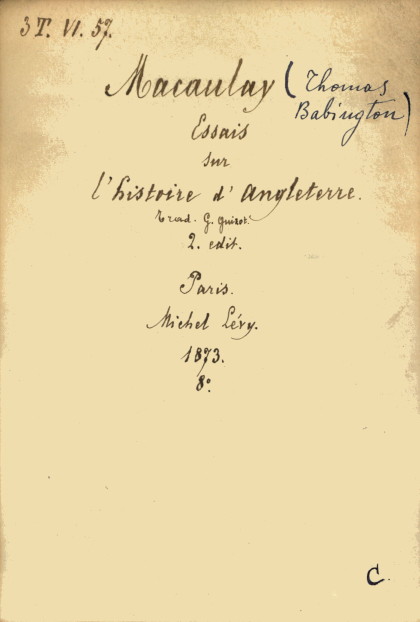 3 T. VI. 57.
Macaulay (Thomas
Babington)
Essais
sur
l'histoire d'Angleterre.
Trad. G. Guizot.
2. edit.
Paris.
Michel Lévy.
1873.
8º.
C.